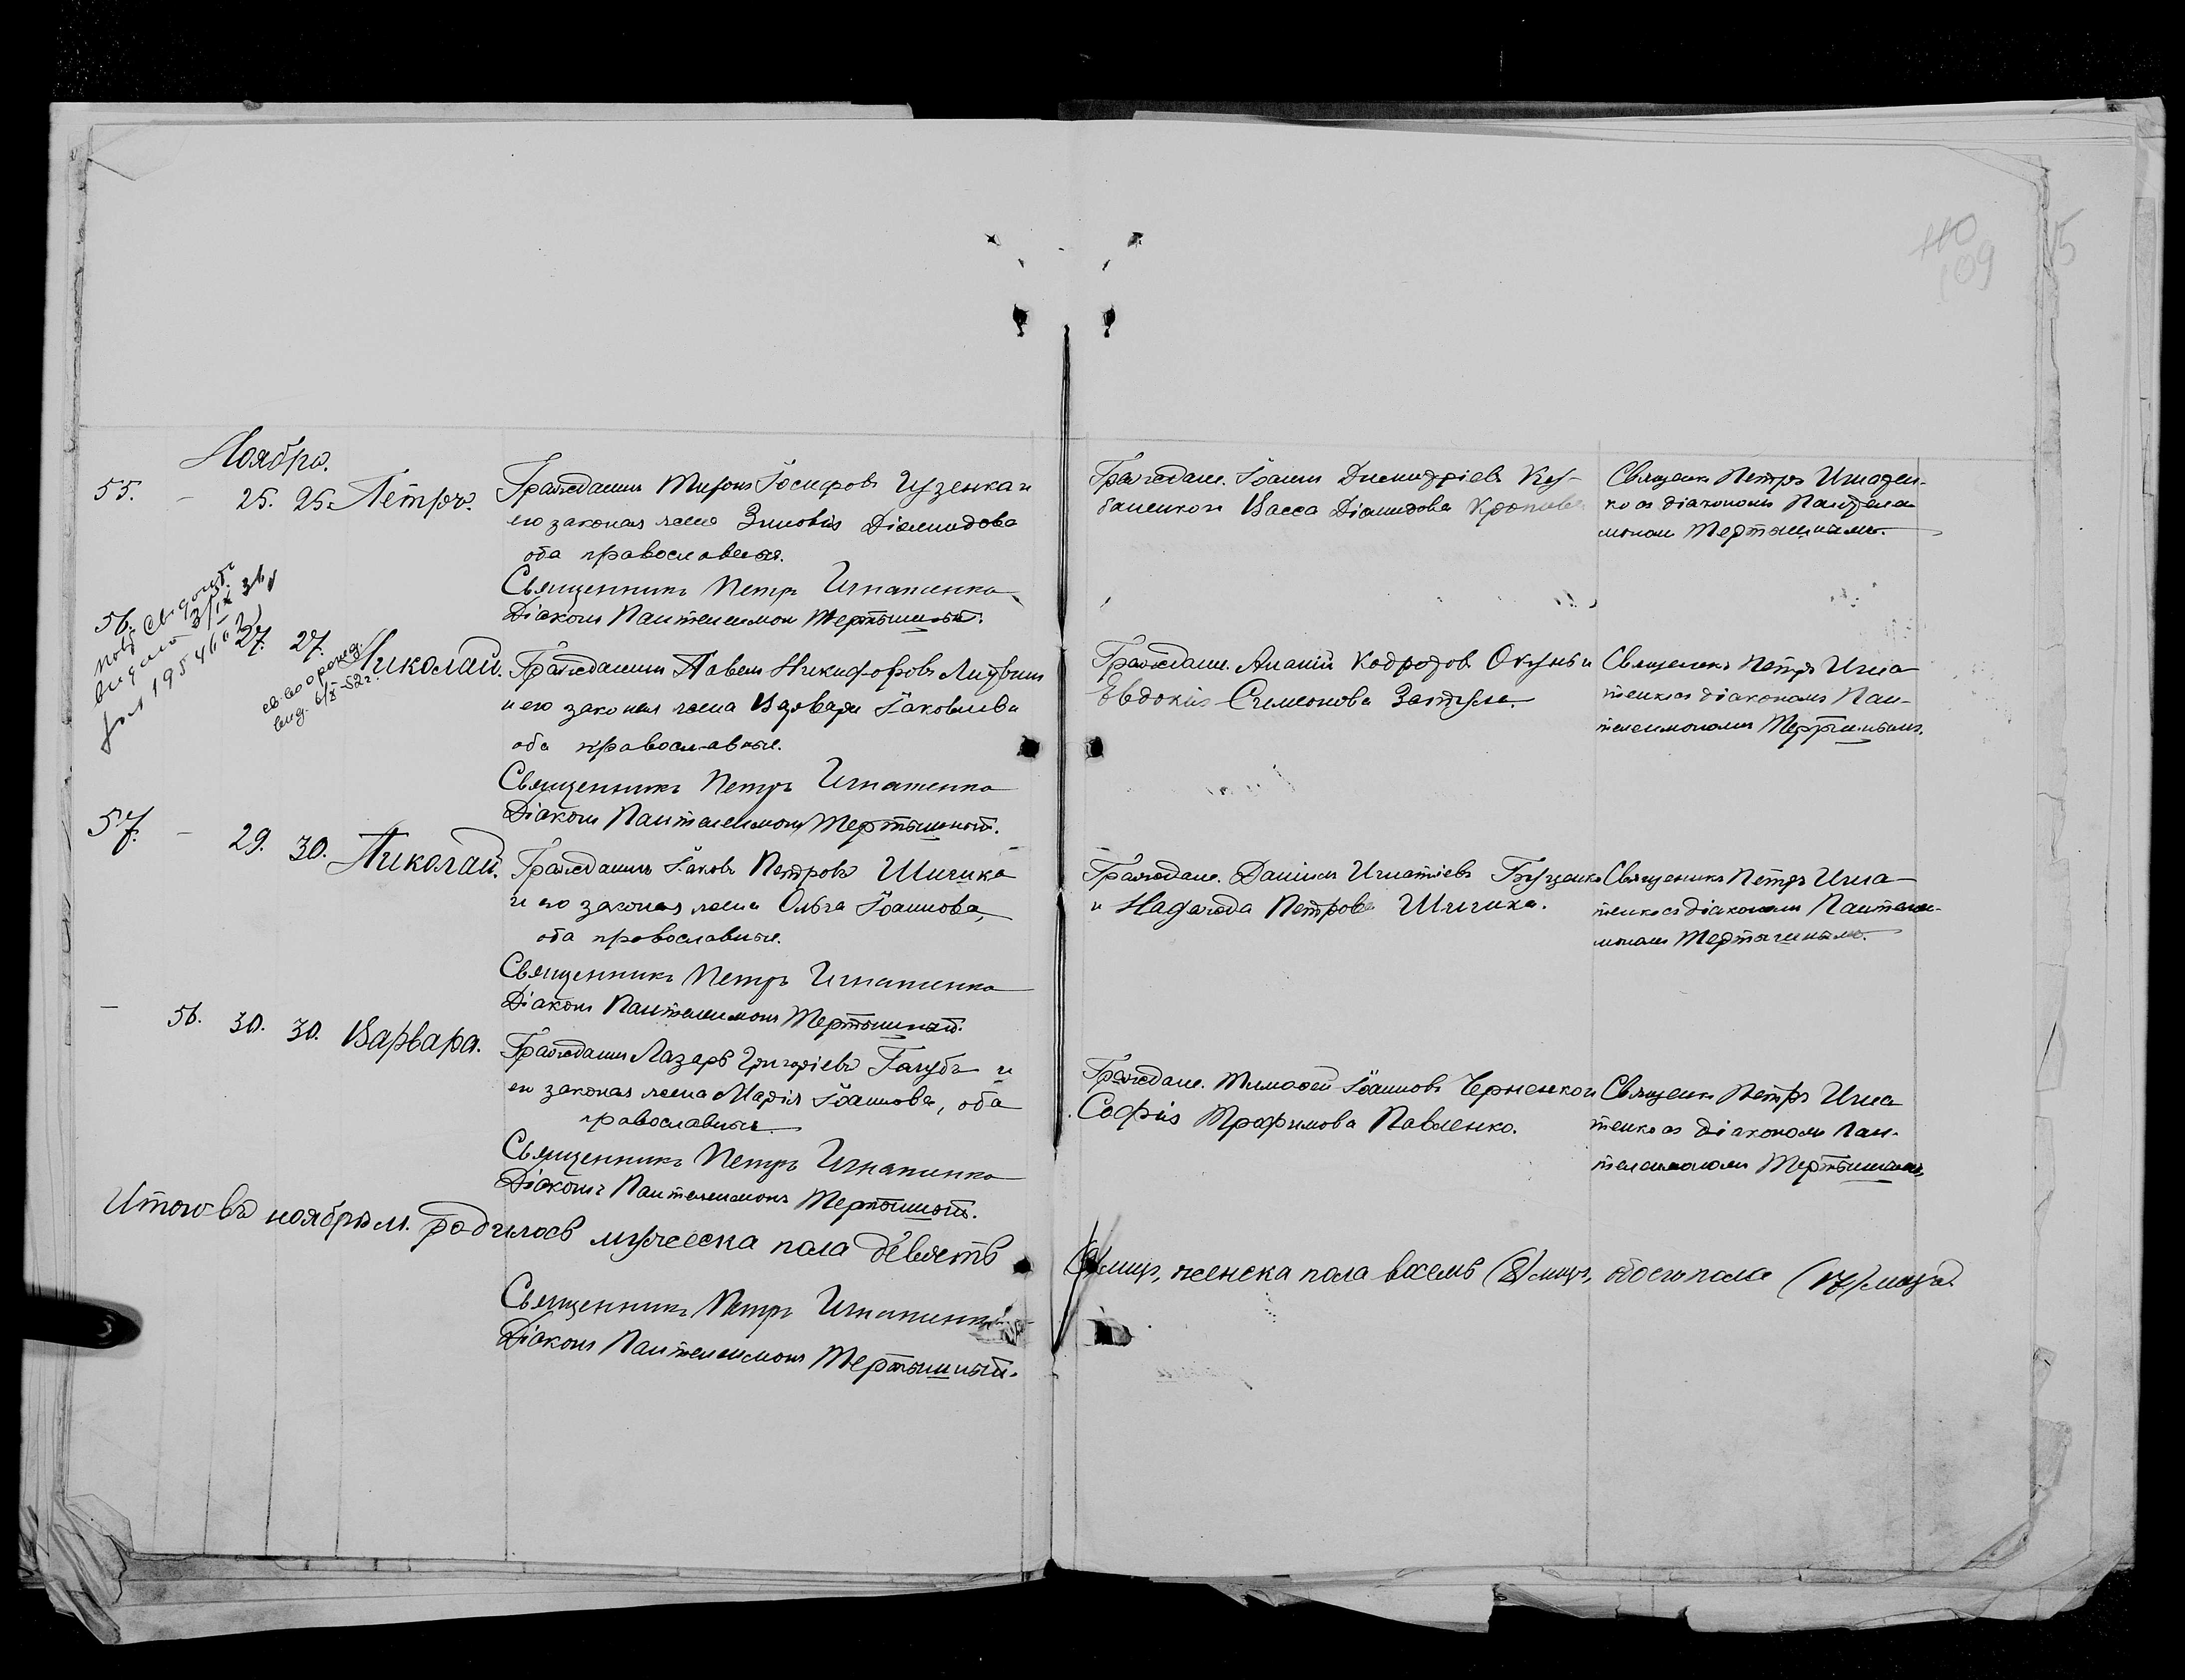 110
109
15
Ноября.
55. – 25. 25. Петръ.
Гражданинъ Миронъ Іосифовъ Цузенка и
его законая жена Зиновія Діамидова
оба православные.
Священникъ Петръ Игнатенко
Діаконъ Пантелеимонъ Мертышный.
Граждане. Іоаннъ Димитріевъ Ку-
баненко и Васса Діамидова
Священъ Петръ Игнатен-
ко съ діакономъ Пантелеи-
мономъ Мертышнымъ.
56. 27. 27. Николай.
3/IX
св.во о рожд.
выд. 6/X-52 г.
Гражданинъ Павелъ Никифоровъ Литвин
и его законая жена Варвара Іаковлева
оба православные.
Священникъ Петръ Игнатенко
Діаконъ Пантелеимонъ Мертышный.
Граждане. Ананій Кодратовъ Окунь и
Евдокія Симеонова
Священникъ Петръ Игна-
тенко съ діакономъ Пан-
телеимономъ Мертышнымъ.
57. – 29. 30. Николай.
Гражданинъ Іаковъ Петровъ Шигика
и его законая жена Ольга Іоаннова,
оба православные.
Священникъ Петръ Игнатенко
Діаконъ Пантелеимонъ Мертышный.
Граждане. Даніилъ Игнатіевъ Буценко
и Надежда Петрова Шигика.
Священникъ Петръ Игна-
тенко съ діакономъ Пантелеи-
мономъ Мертышнымъ.
– 56. 30. 30. Варвара.
Гражданинъ Лазарь Григоріевъ Голубъ и
его законая жена Марія Іоаннова, оба
православные.
Священникъ Петръ Игнатенко
Діаконъ Пантелеимонъ Мертышный.
Граждане. Тимофей Іоанновъ Черненко и
Софія Трофимова Павленко.
Священъ Петръ Игна
тенко съ діакономъ Пан-
телеимономъ Мертышнымъ
Итого въ ноябрѣ м. родилось мужеска пола девять
(9) лицъ, женска пола восемь (8) лицъ, обоего пола (17) лицъ.
Священникъ Петръ Игнатенко
Діаконъ Пантелеимонъ Мертышный.